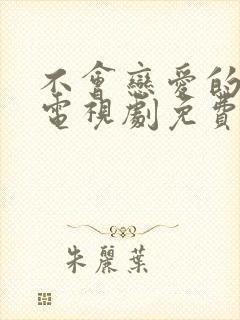 不會戀愛的
電視劇免費
朱麗葉